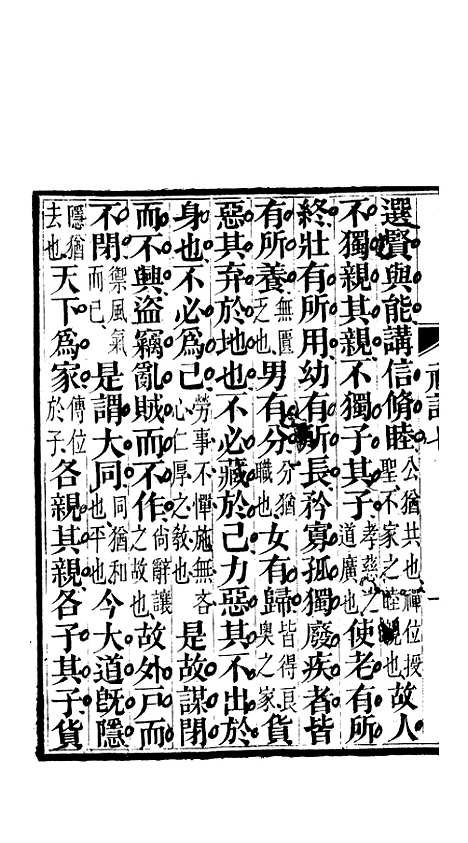 選賢與能講信脩睦公猶共也禪位授聖不家之睦親也故人
不獨親其親不獨子其子孝慈之道廣也使老有所
終壯有所用幼有所長矜寡孤獨廢疾者皆
有所養無匱乏也男有分分猶職也女有歸皆得良奧之家貨
惡其弃於地也不必藏於己力惡其不出於
身也不必爲己勞事不憚施無吝心仁厚之敎也是故謀閉
而不興盜竊亂賊而不作尙辭讓之故也故外戶而
不閉禦風氣而已是謂大同同猶和也平也今大道旣隱
隱猶去也天下爲家傳位於子各親其親各子其子貨